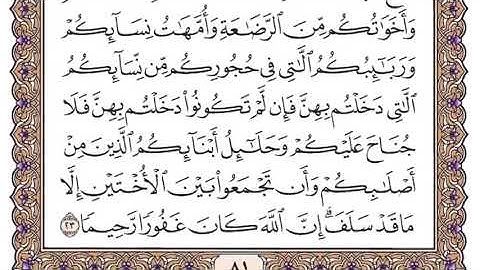 وَأَخَوَٰتُكُم مِّنَ ٱلرَّضَٰعَةِ وَأُمَّهَٰتُ نِسَآئِكُمْ
وَرَبَٰٓئِبُكُمُ ٱلَّٰتِى فِى حُجُورِكُم مِّن نِّسَآئِكُمُ
ٱلَّٰتِى دَخَلْتُم بِهِنَّ فَإِن لَّمْ تَكُونُوا۟ دَخَلْتُم بِهِنَّ فَلَا
جُنَاحَ عَلَيْكُمْ وَحَلَٰٓئِلُ أَبْنَآئِكُمُ ٱلَّذِينَ مِنْ
أَصْلَٰبِكُمْ وَأَن تَجْمَعُوا۟ بَيْنَ ٱلْأُخْتَيْنِ إِلَّا
مَا قَدْ سَلَفَ ۗ إِنَّ ٱللَّهَ كَانَ غَفُورًا رَّحِيمًا ٢٣
٨١